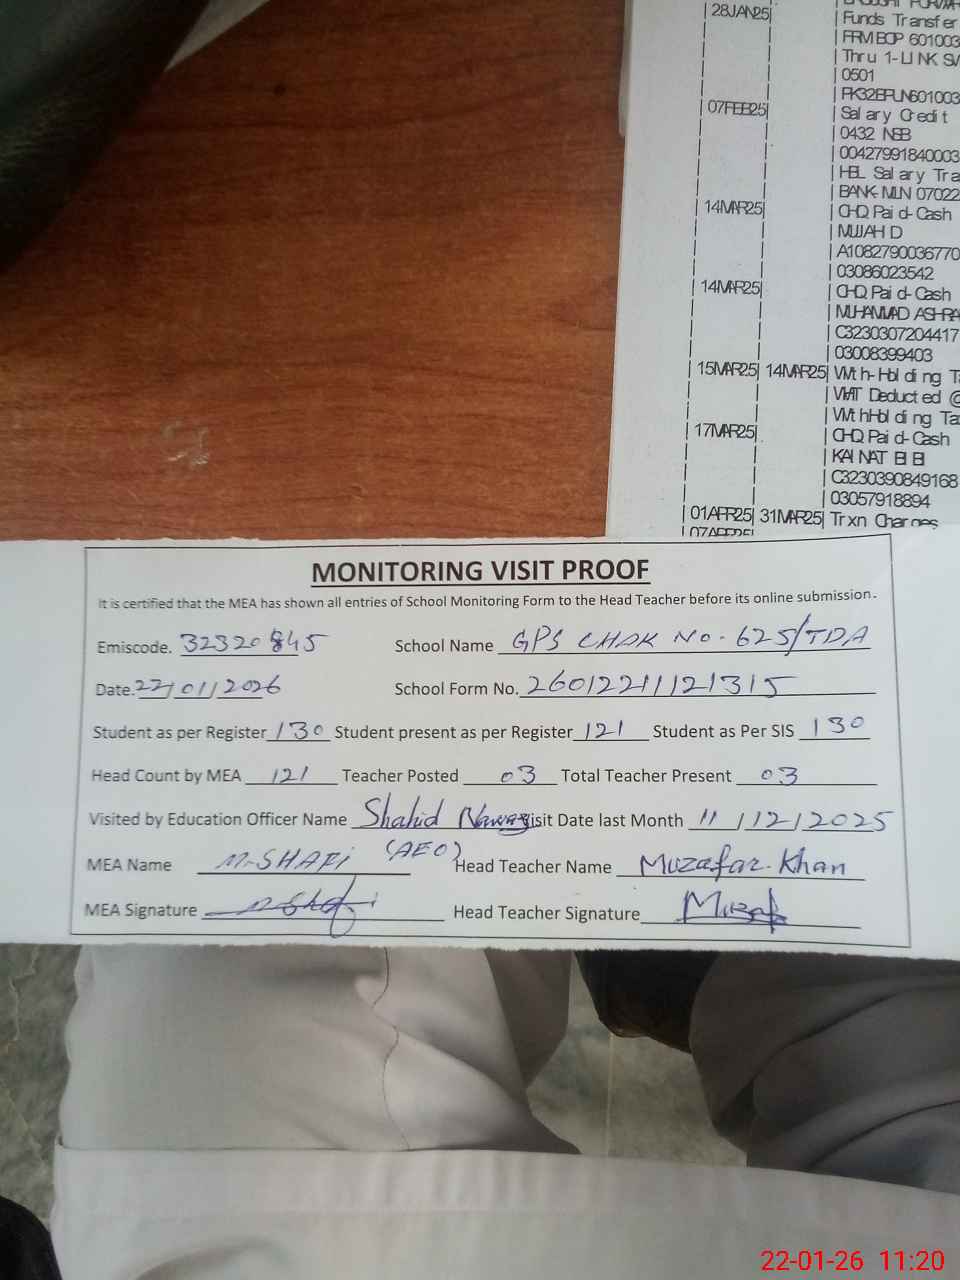 28JAN25
Funds Transfer
FRM BOP 601003
Thru 1-LINK SW
0501
PK32BPUN601003
07FEB25 Salary Credit
0432 NSB
00427991840003
HBL Salary Tra
BANK-MLN 07022
14MAR25 CHQ Paid-Cash
MUJAHID
A1082790036770
03086023542
14MAR25 CHQ Paid-Cash
MUHAMMAD ASHRA
C3230307204417
03008399403
15MAR25 14MAR25 With-Holding Ta
WHT Deducted @
WithHolding Tax
17MAR25 CHQ Paid-Cash
KAINAT BIBI
C3230390849168
03057918894
01APR25 31MAR25 Trxn Charges
07APR25
MONITORING VISIT PROOF
It is certified that the MEA has shown all entries of School Monitoring Form to the Head Teacher before its online submission.
Emiscode. 32320845 School Name GPS CHAK NO. 625/TDA
Date. 22/01/2026 School Form No. 26012211121315
Student as per Register 130 Student present as per Register 121 Student as Per SIS 130
Head Count by MEA 121 Teacher Posted 03 Total Teacher Present 03
Visited by Education Officer Name Shahid Nawaz Visit Date last Month 11/12/2025
(AEO)
MEA Name M.SHAFI Head Teacher Name Muzafar Khan
MEA Signature M.Shafi Head Teacher Signature Muzaf
22-01-26 11:20